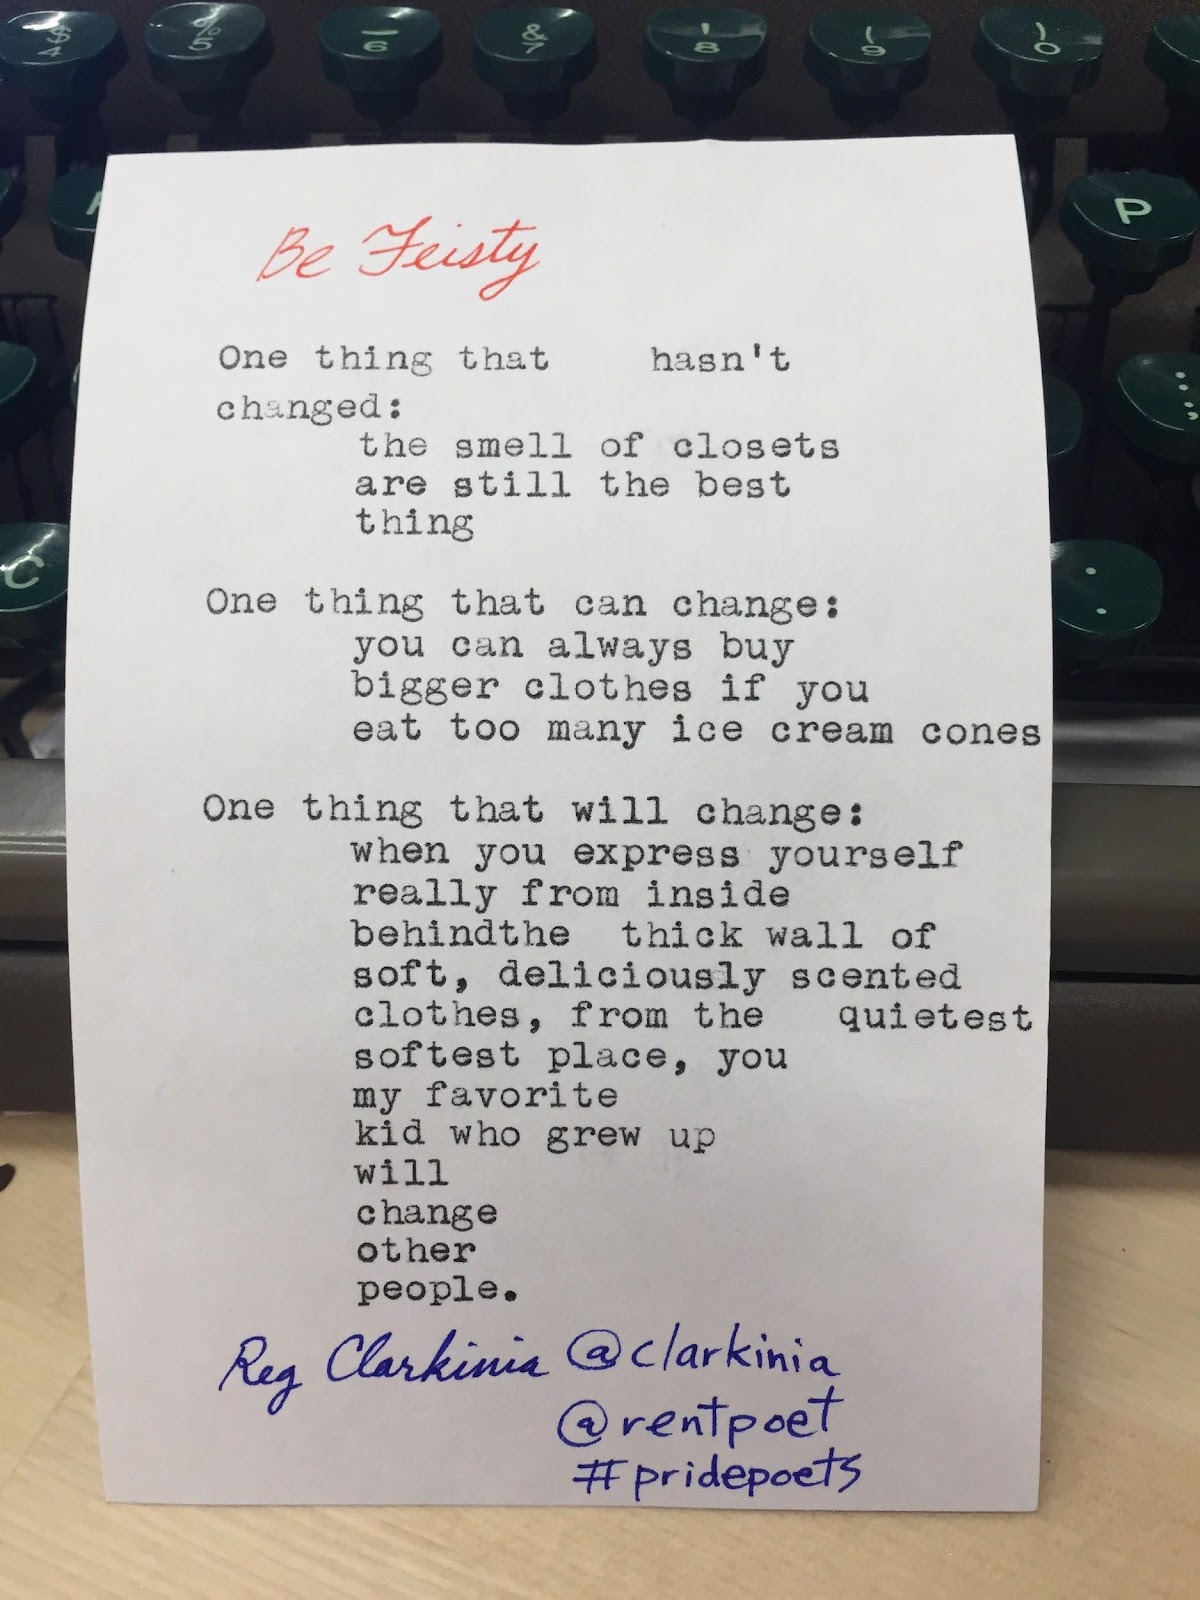 $ 4
% 5
— 6
& 7
' 8
( 9
) 0
P
C
Be Feisty
One thing that hasn't
changed:
the smell of closets
are still the best
thing
One thing that can change:
you can always buy
bigger clothes if you
eat too many ice cream cones
One thing that will change:
when you express yourself
really from inside
behindthe thick wall of
soft, deliciously scented
clothes, from the quietest
softest place, you
my favorite
kid who grew up
will
change
other
people.
Reg Clarkinia @clarkinia
@rentpoet
#pridepoets